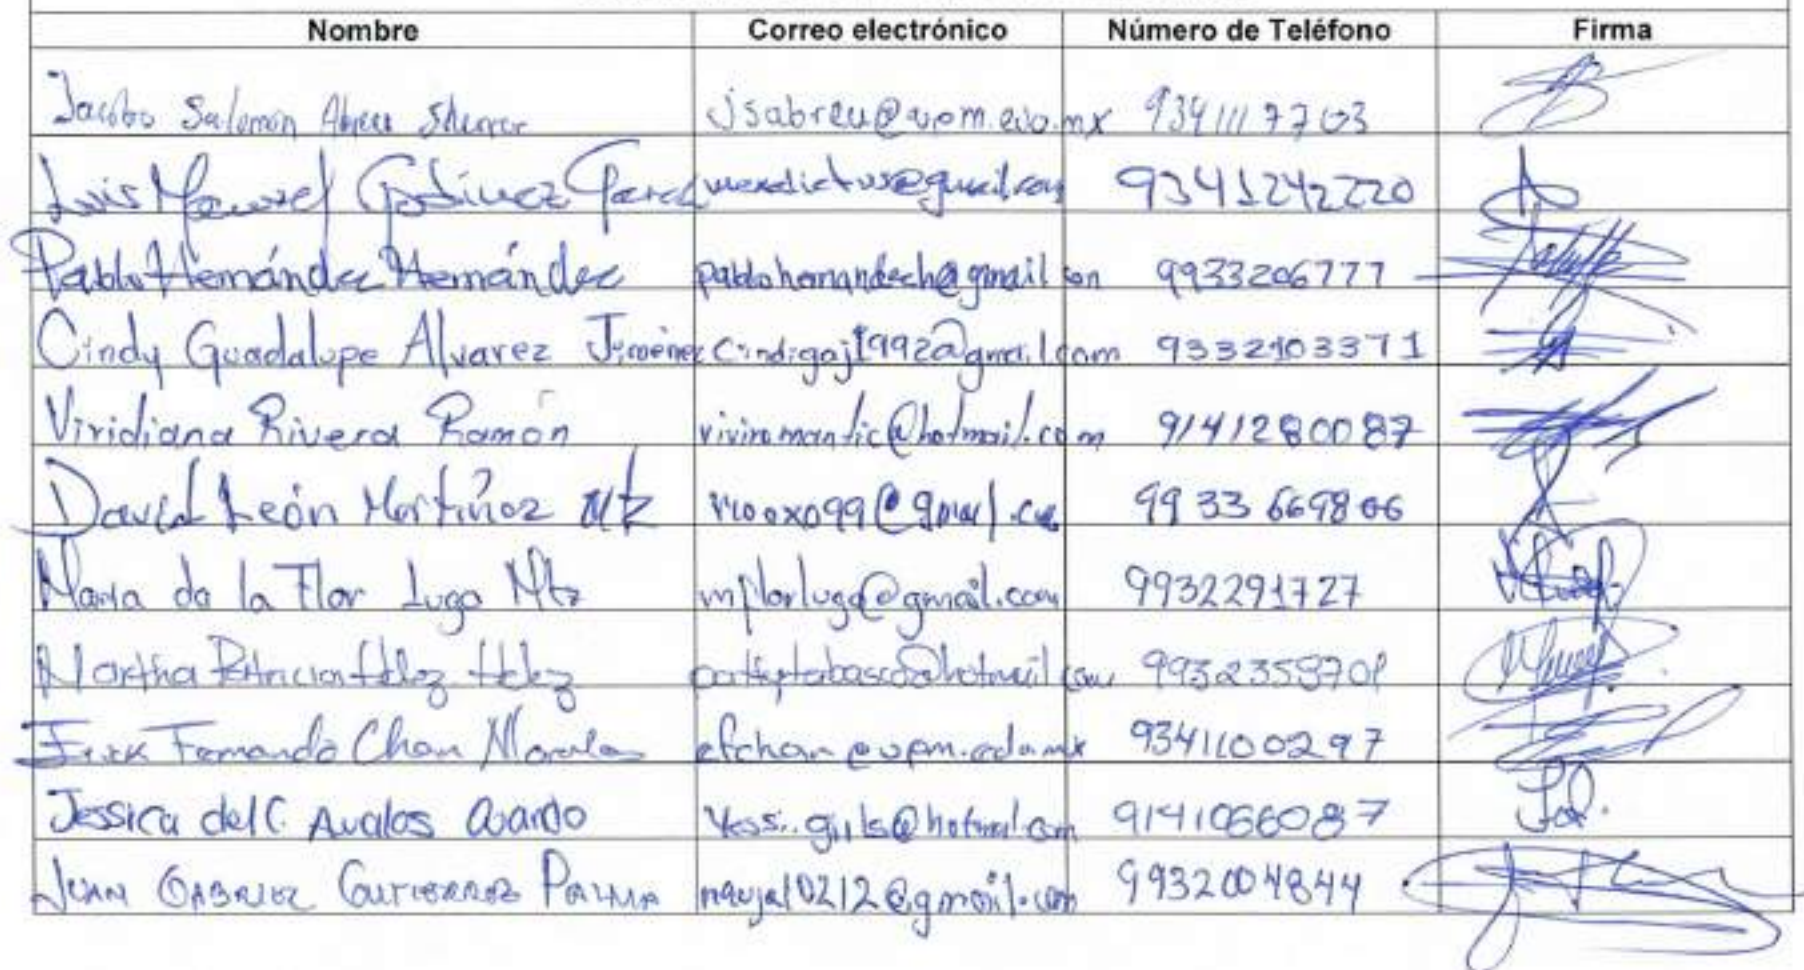 Nombre Correo electrónico Número de Teléfono Firma
Jacobo Salomón Abreu jsabreu@upm.edu.mx 9341117703
Luis Manuel Godínez @gmail.com 9341242220
Pablo Hernández Hernández pablohernandezh@gmail.com 9933206777
Cindy Guadalupe Alvarez Jiménez Cindigaj1992@gmail.com 9332103371
Viridiana Rivera Ramón viviromantic@hotmail.com 9141280087
David León Martínez Mtz 9933669806
Maria de la Flor Lugo Mtz mflorlugo@gmail.com 9932291727
Martha Patricia Hdez Hdez pattytabasco@hotmail.com
Erik Fernando Chan Morales efchan@upm.edu.mx 9341100297
Jessica del C. Avalos Ovando Yessi.girls@hotmail.com 9141066087
JUAN GABRIEL GUTIERREZ PALMA naujal0212@gmail.com 9932004844